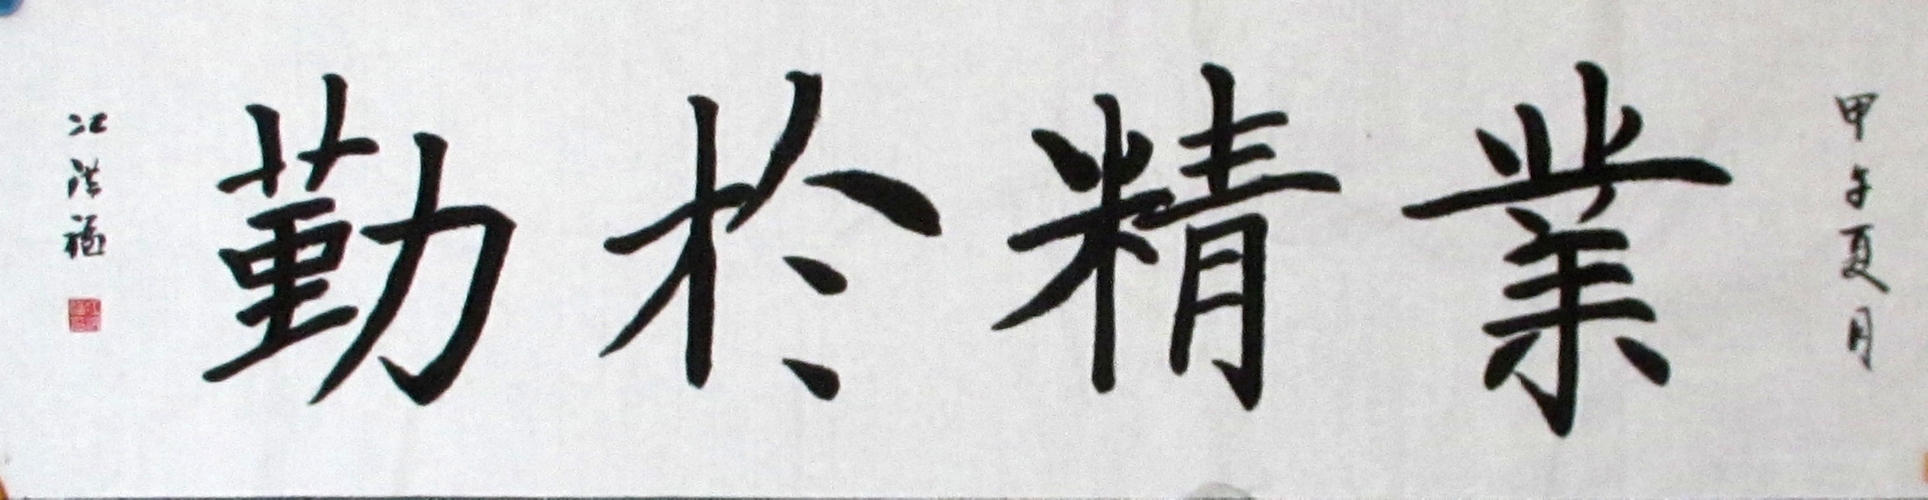 甲午夏月
業精於勤
江洪福